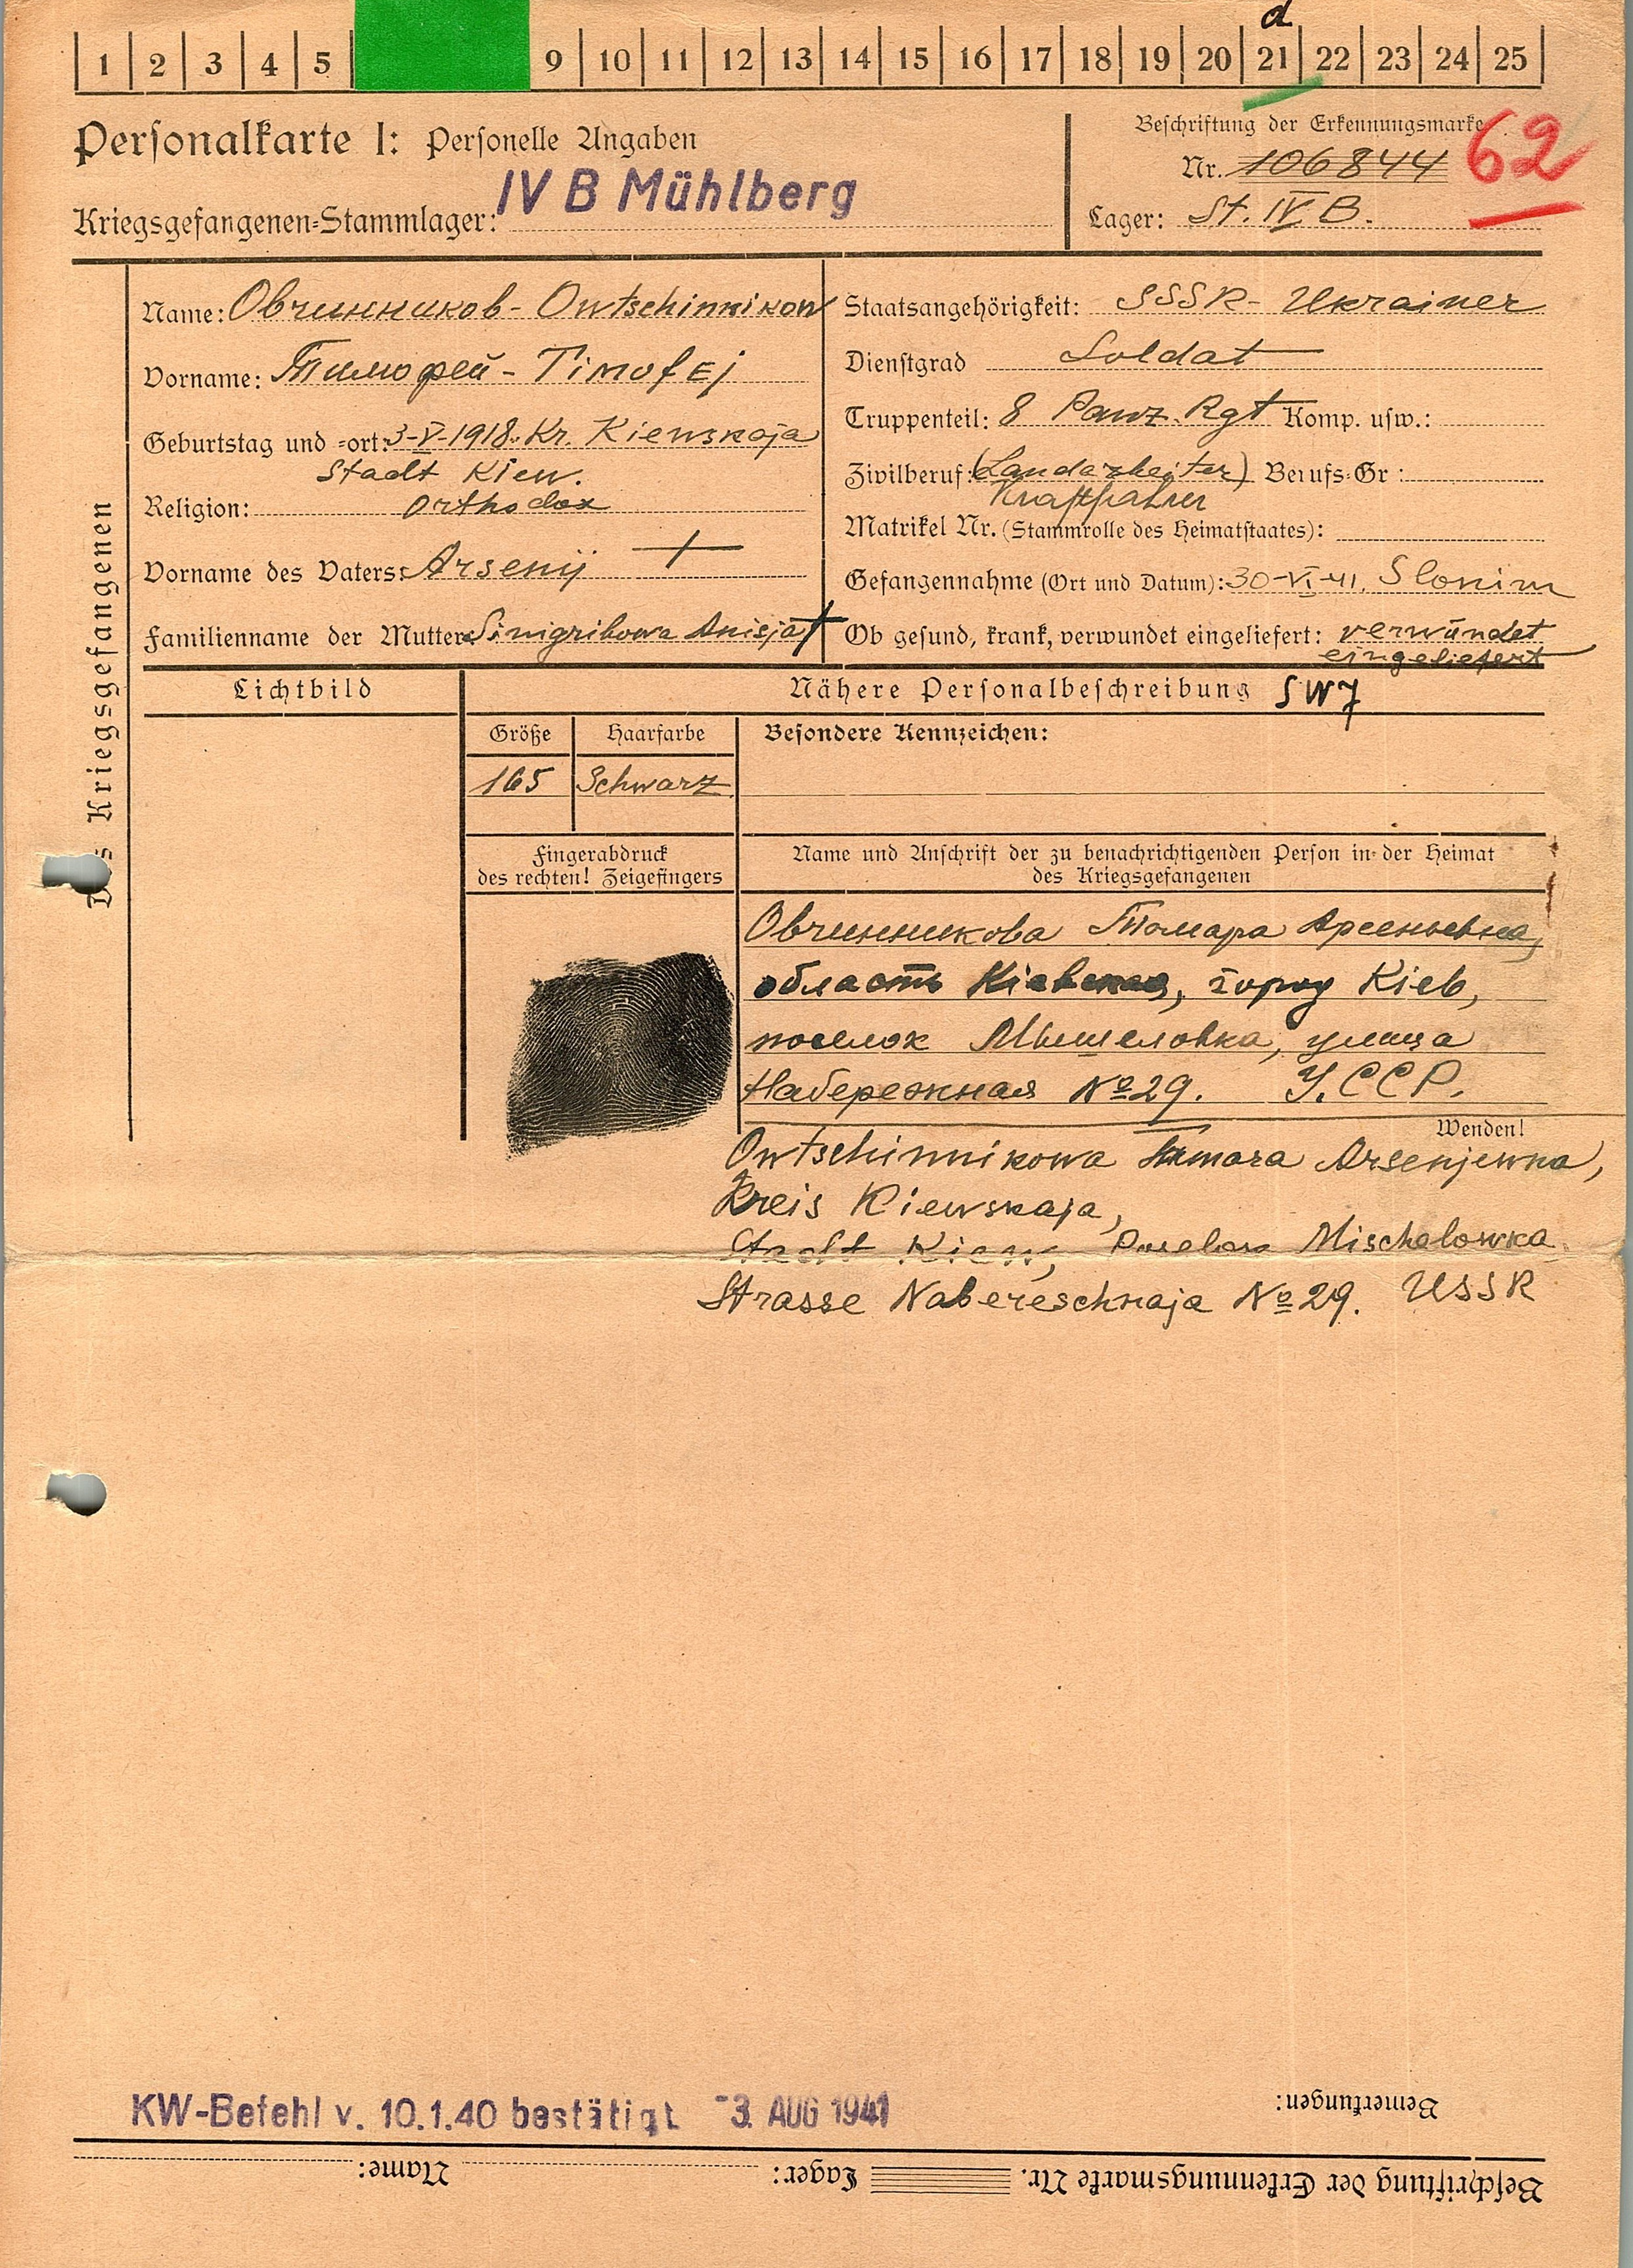 d
1 2 3 4 5 9 10 11 12 13 14 15 16 17 18 19 20 21 22 23 24 25
Personalkarte I: Personelle Angaben
Beschriftung der Erkennungsmarke
Nr. 106844 62
IV B Mühlberg
Kriegsgefangenen-Stammlager:
Lager: St. IV B.
Des Kriegsgefangenen
Name: Овчинников - Owtschinnikow
Vorname: Тимофей - Timofej
Geburtstag und -ort: 3-V-1918. Kr. Kiewskaja
Stadt Kiew.
Religion: orthodox
Vorname des Vaters: Arsenij +
Familienname der Mutter: Sinigribowa Anisja +
Staatsangehörigkeit: SSSR - Ukrainer
Dienstgrad Soldat
Truppenteil: 8 Panz. Rgt Komp. usw.:
Zivilberuf: (Landarbeiter) Berufs-Gr:
Kraftfahrer
Matrikel Nr. (Stammrolle des Heimatstaates):
Gefangennahme (Ort und Datum): 30-VI-41. Slonim
Ob gesund, krank, verwundet eingeliefert: verwundet
eingeliefert
Lichtbild
Nähere Personalbeschreibung SW7
Größe Haarfarbe Besondere Kennzeichen:
165 Schwarz
Fingerabdruck
des rechten! Zeigefingers
Name und Anschrift der zu benachrichtigenden Person in der Heimat
des Kriegsgefangenen
Овчинникова Томара Арсеньевна,
область Кіевская, город Кіев,
поселок Мышеловка, улица
Набережная №29. У.ССР.
Wenden!
Owtschinnikowa Tamara Arsenjewna,
Kreis Kiewskaja,
Stadt Kiew, Poselok Mischelowka
Strasse Nabereschnaja №29. USSR
KW-Befehl v. 10.1.40 bestätigt -3. AUG 1941
Bemerkungen:
Beschriftung der Erkennungsmarke Nr. Lager: Name: